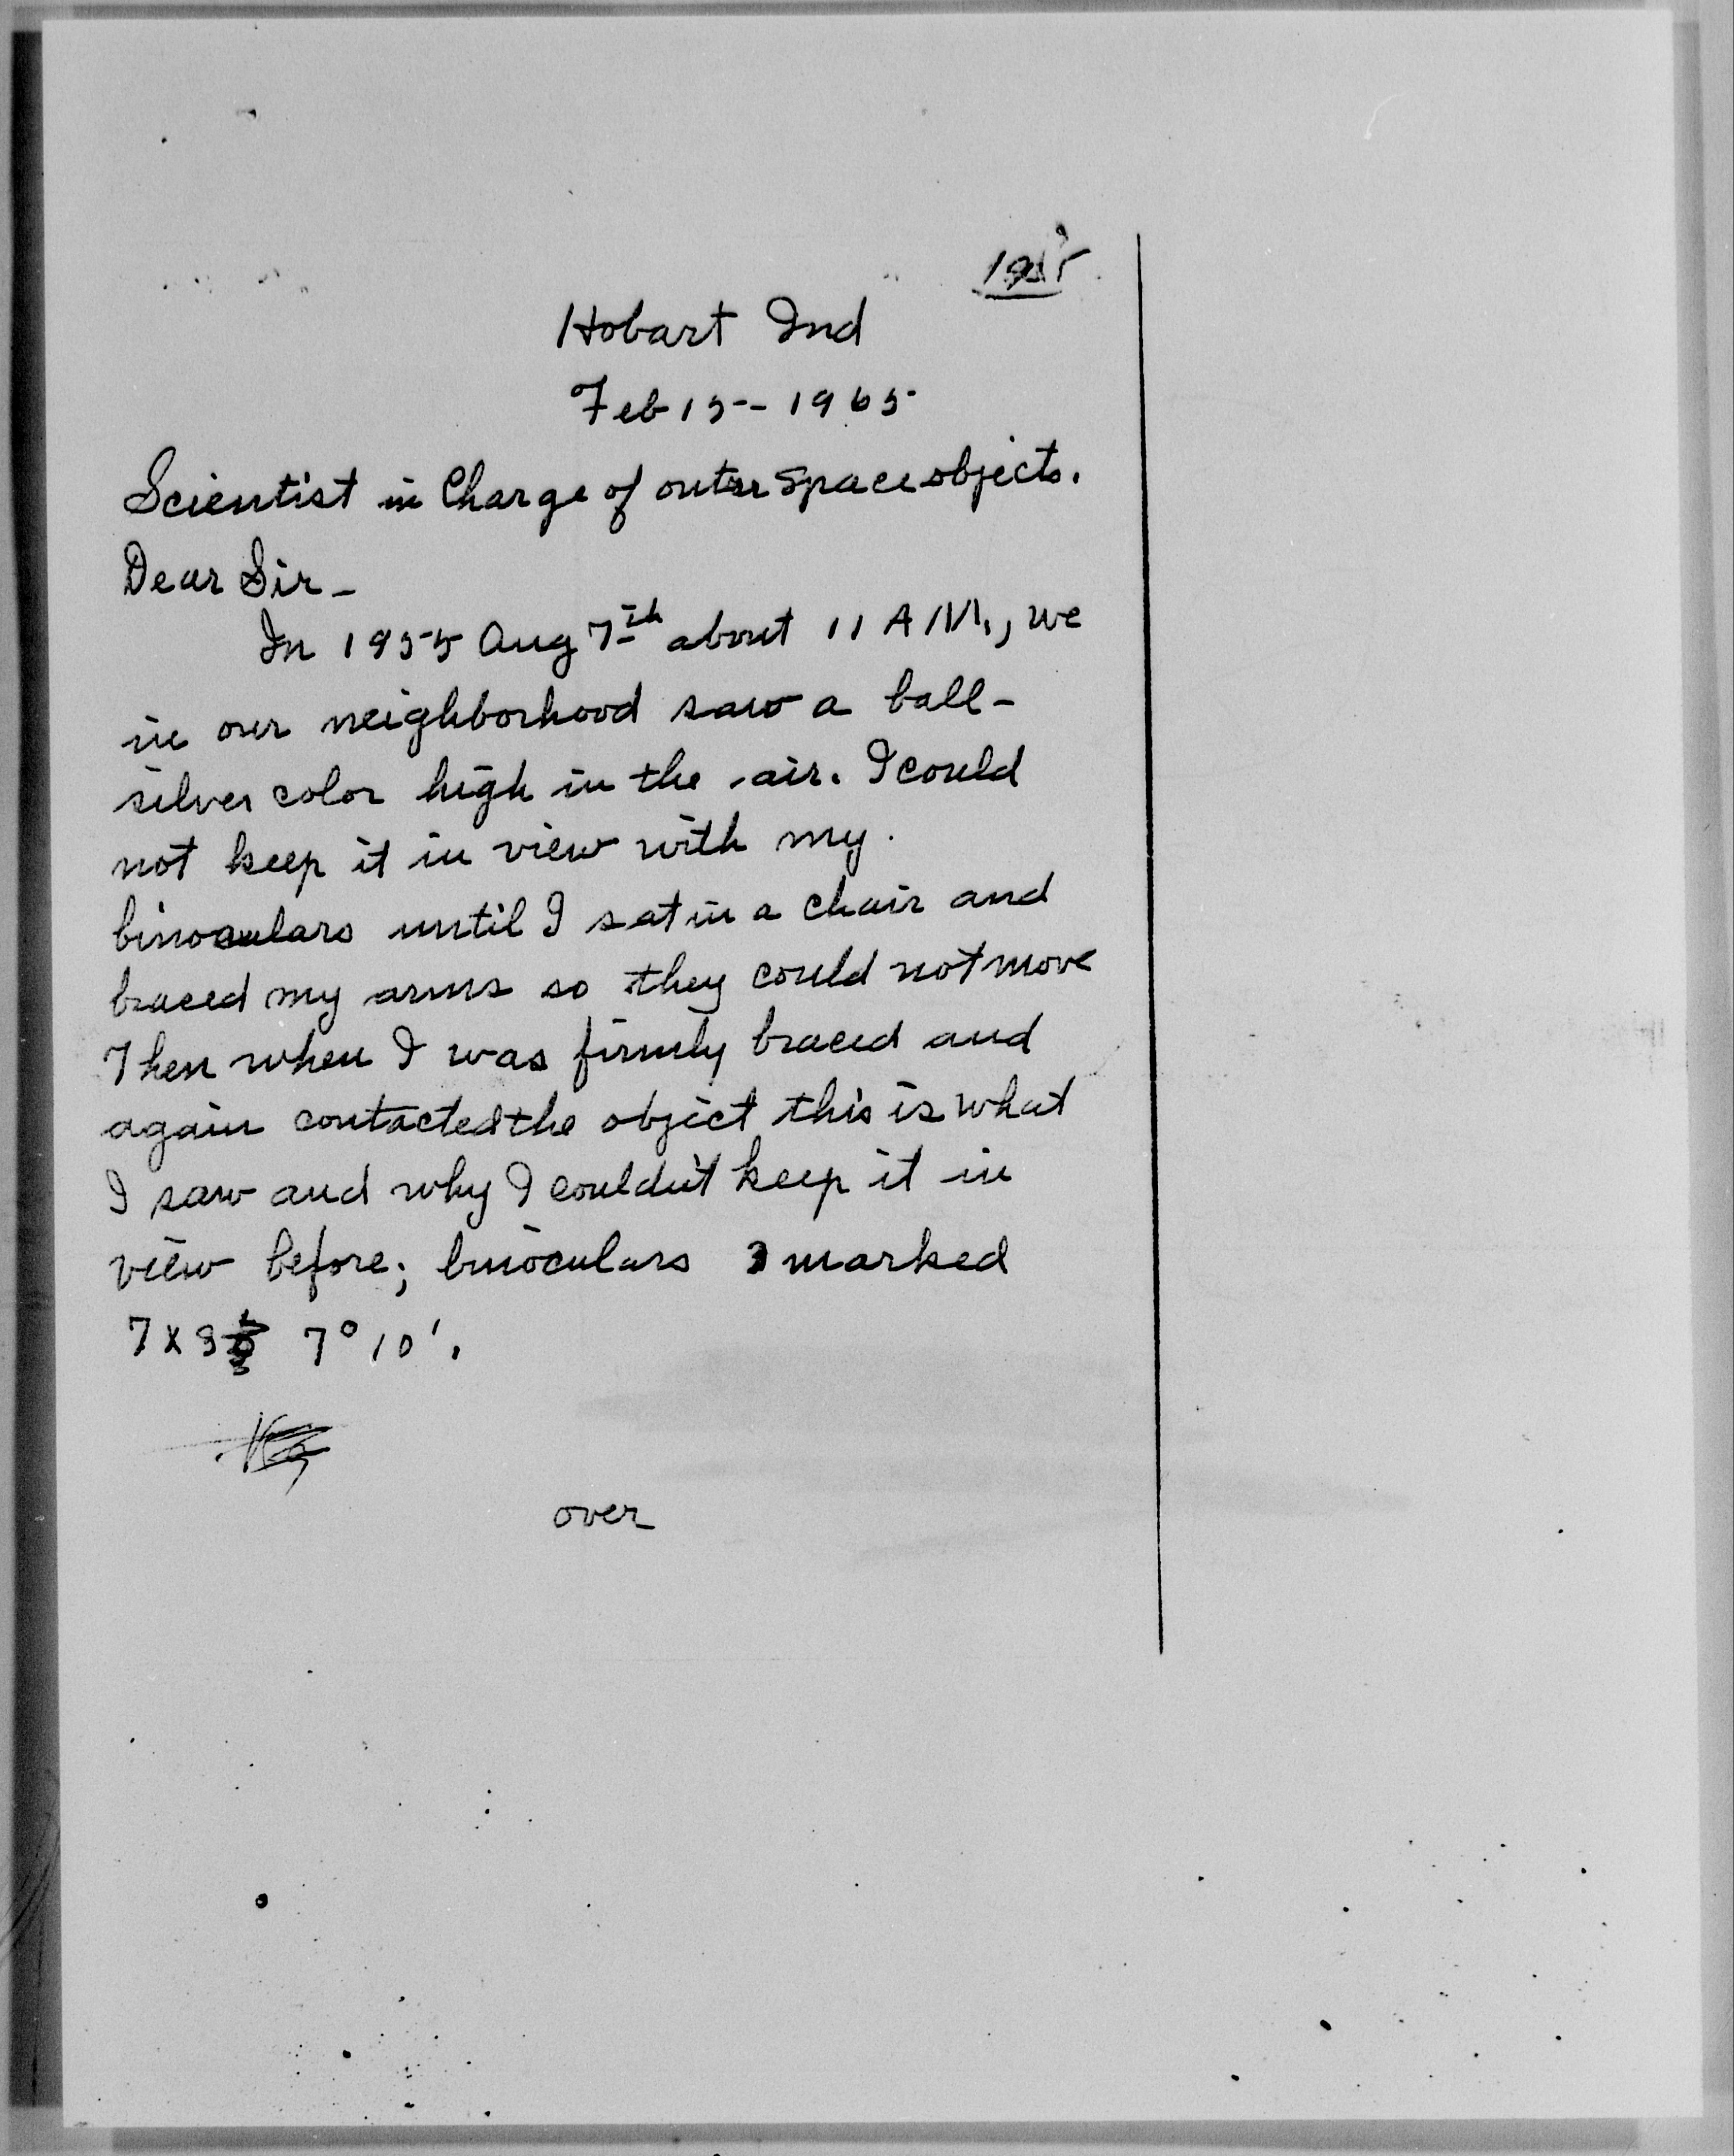 Hobart Ind
Feb 15 - 1965
Scientist in Charge of outer space objects.
Dear Sir -
In 1955 Aug 7th about 11 A M., we
in our neighborhood saw a ball -
silver color high in the air. I could
not keep it in view with my
binoculars until I sat in a chair and
braced my arms so they could not move
Then when I was firmly braced and
again contacted the object this is what
I saw and why I couldn't keep it in
view before; binoculars marked
7 x 35 7° 10'.
over